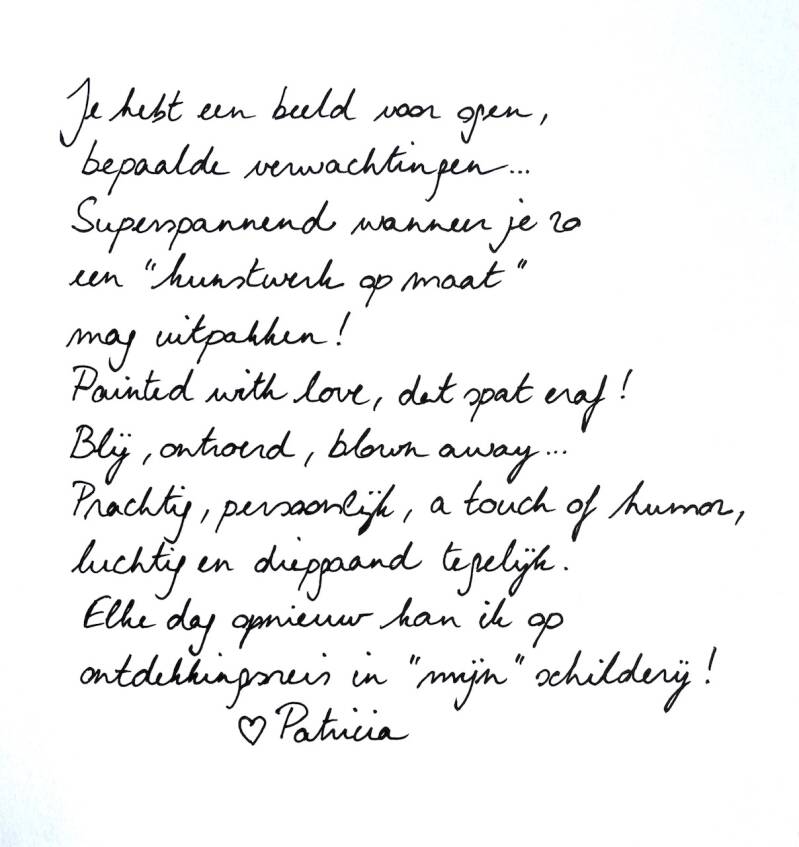 Je hebt een beeld voor ogen,
bepaalde verwachtingen...
Superspannend wanneer je zo
een "kunstwerk op maat"
mag uitpakken!
Painted with love, dat spat eraf!
Blij, ontroerd, blown away...
Prachtig, persoonlijk, a touch of humor,
luchtig en diepgaand tegelijk.
Elke dag opnieuw kan ik op
ontdekkingsreis in "mijn" schilderij!
♡ Patricia